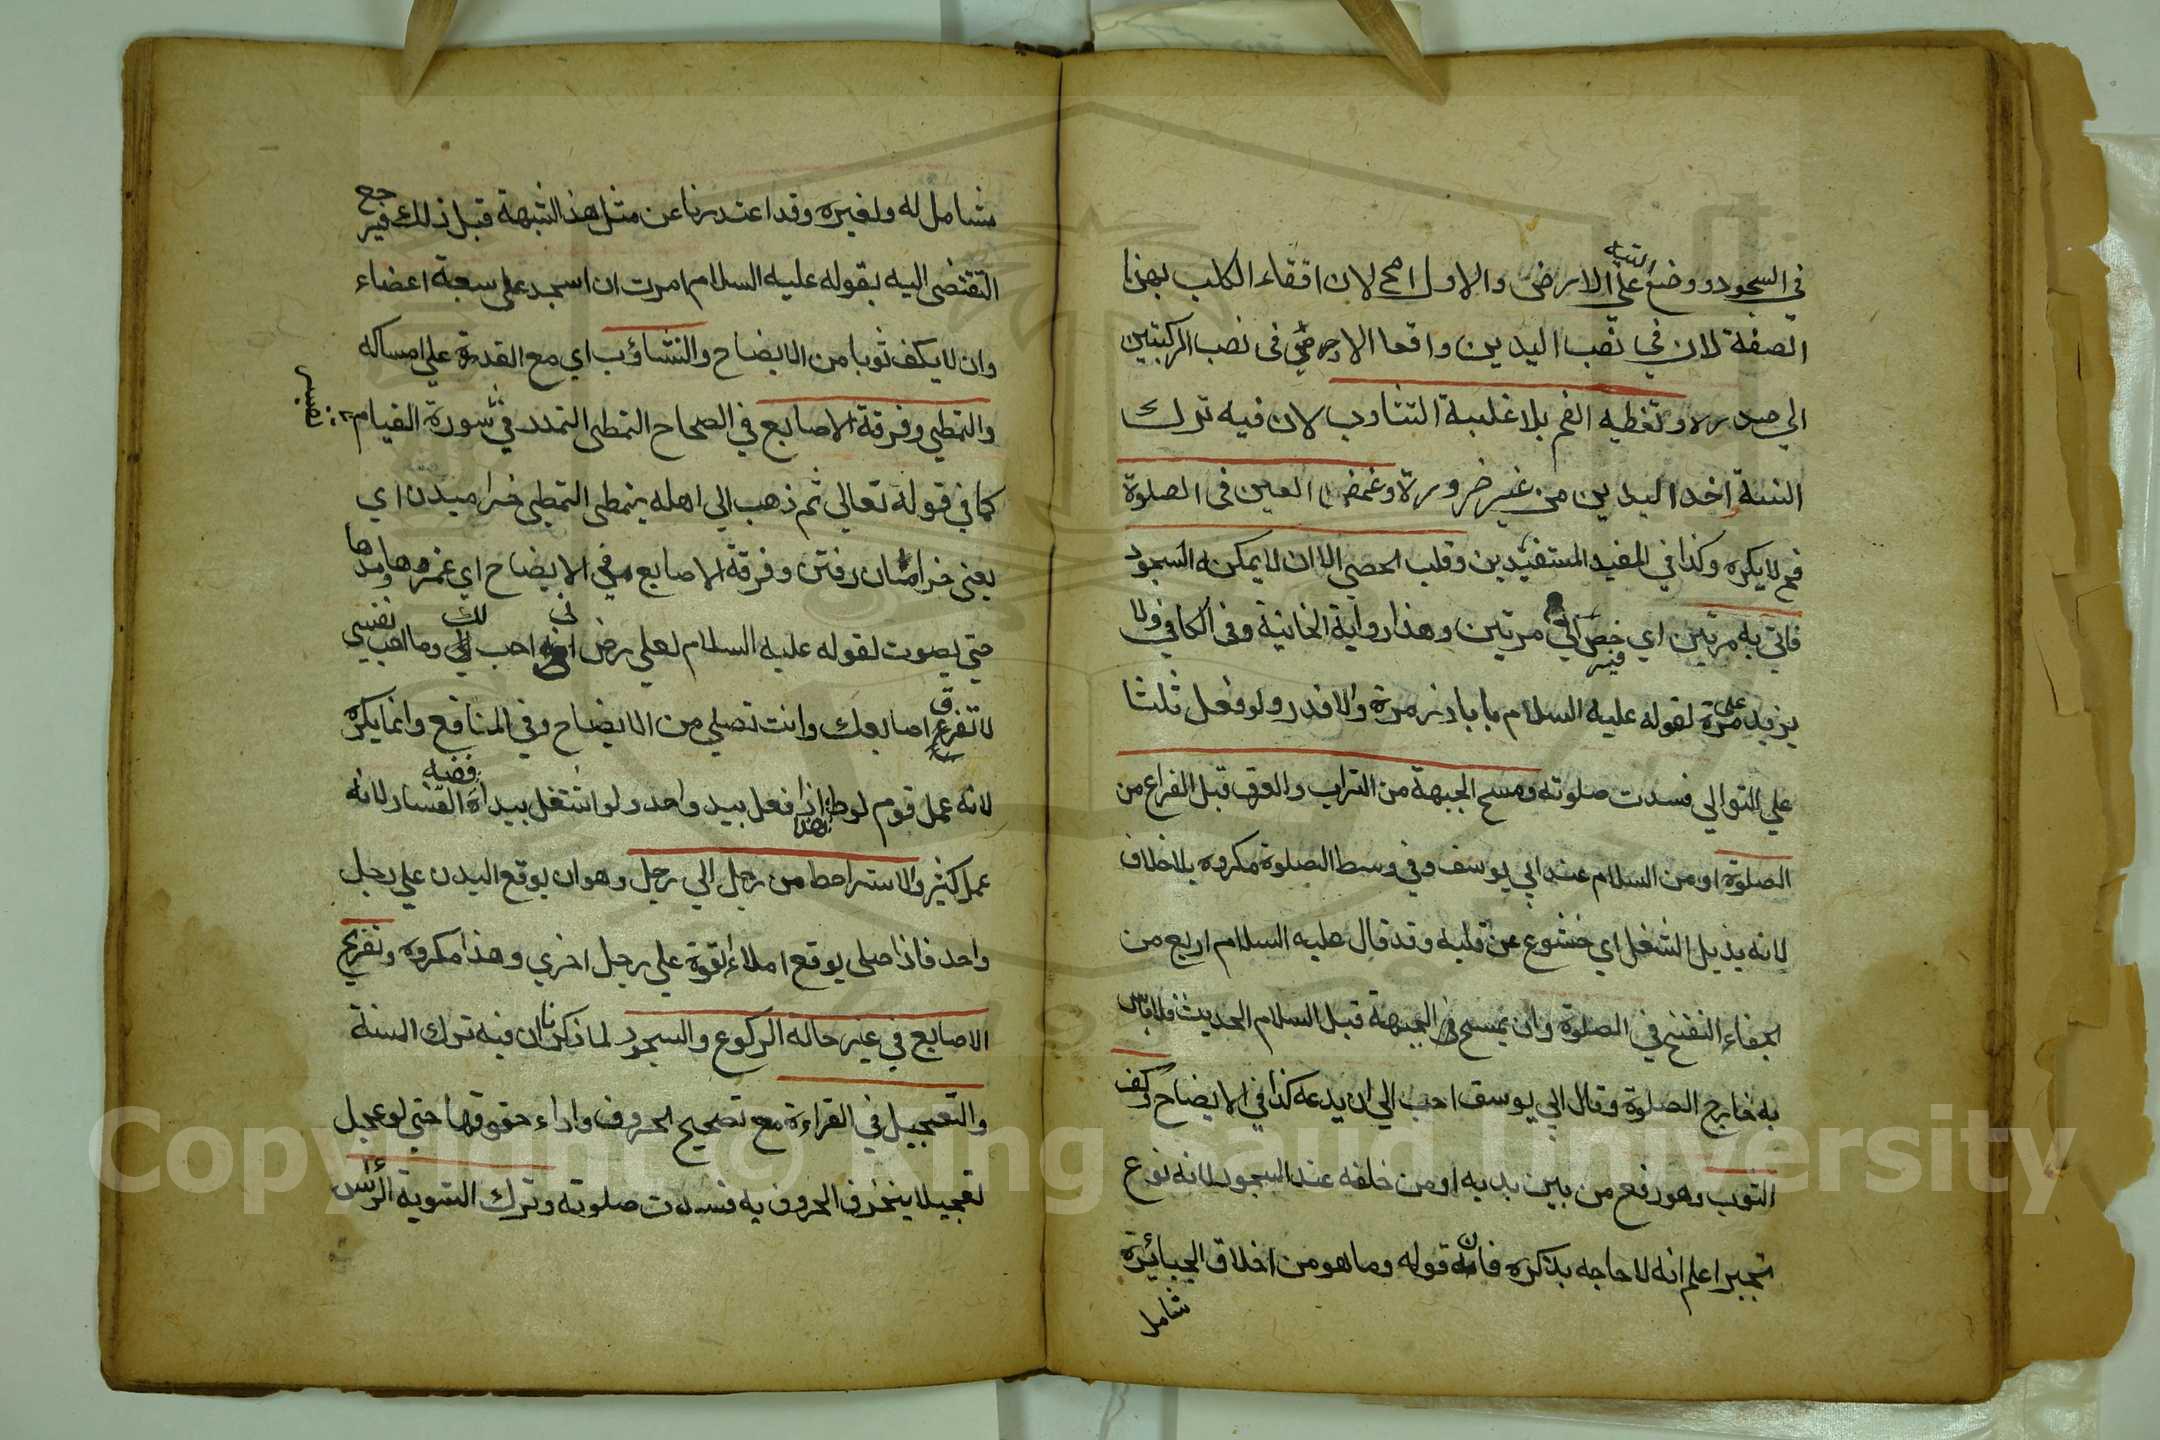 في السجود ووضع اليتيه على الارض والاول اصح لان اقعاء الكلب بهذا
الصفة لان في نصب اليدين واقعا الادمي في نصب الركبتين
الي صدره وتغطيه الفم بلا غلبة التثاوب لان فيه ترك
السنة اخد اليدين من غير ضرورة وغمض العين في الصلوة
فح لا يكره وكذا في المفيد المستفيدين وقلب الحصي الا ان لا يمكنه السجود
فاتي به مرتين اي مرتين وهذا رواية الخانية وفي الكافي ولا
يزيد على مرة لقوله عليه السلام يا باذر مرة والا فذر ولو فعل ثلثا
علي التوالي فسدت صلوته ومسح الجبهة من التراب والعرق قبل الفراغ من
الصلوة او من السلام عند ابي يوسف وفي وسط الصلوة مكروه بلا خلاف
لانه يذيل الشغل اي خشوع عن قلبه وقد قال عليه السلام اربع من
الجفاء النفخ في الصلوة وان يمسح الجبهة قبل السلام الحديث فلا باس
به خارج الصلوة وقال ابي يوسف احب الي ان يدعه كذا في الايضاح وكف
الثوب وهو رفع من بين يديه او من خلفه عند السجود لانه نوع
تجبر اعلم انه لا حاجه بذكره فان قوله وما هو من اخلاق الجبائرة
شامل
شامل له ولغيره وقد اعتدرنا عن مثل هذ الشبهة قبل ذلك فيرجح
التقتضي اليه بقوله عليه السلام امرت ان اسجد على سبعة اعضاء
وان لا يكف ثوبا من الايضاح والتشاؤب اي مع القدرة علي امساكه
والتمطي وفرقة الاصابع في الصحاح التمطي التمدد في سورة القيام
كما في قوله تعالي ثم ذهب الي اهله يتمطى التمطي خراميدن اي
يعني خرامشان رفتن وفرقة الاصابع وفي الايضاح اي غمزها ومدها
حتي يصوت لقوله عليه السلام لعلي رض اني احب لك وما احب نفسي
لا تفرقع اصابعك وانت تصلي من الايضاح وفي المنافع وانما يكره
لانه عمل قوم لوط اذا فعل بيد واحد ولو اشتغل بيداه الفساد لانه
عمل كثير والاستراحط من رجل الي رجل وهو ان يوقع اليدن علي رجل
واحد فاذا صلى يوقع املاء القوة علي رجل اخري وهذا مكروه وتفريج
الاصابع في غير حاله الركوع والسجود لما ذكرنا ان فيه ترك السنة
والتعجيل في القراءة مع تصحيح الحروف واداء حقوقها حتي لو عجل
تعجيلا ينحذف الحروف به فسدت صلوته وترك التسوية الرأس
Copyright © King Saud University